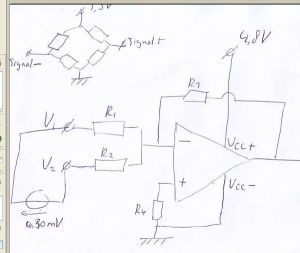 Signal+
Signal-
4,8V
R3
V1
R1
V2
R2
-
+
Vcc+
Vcc-
R4